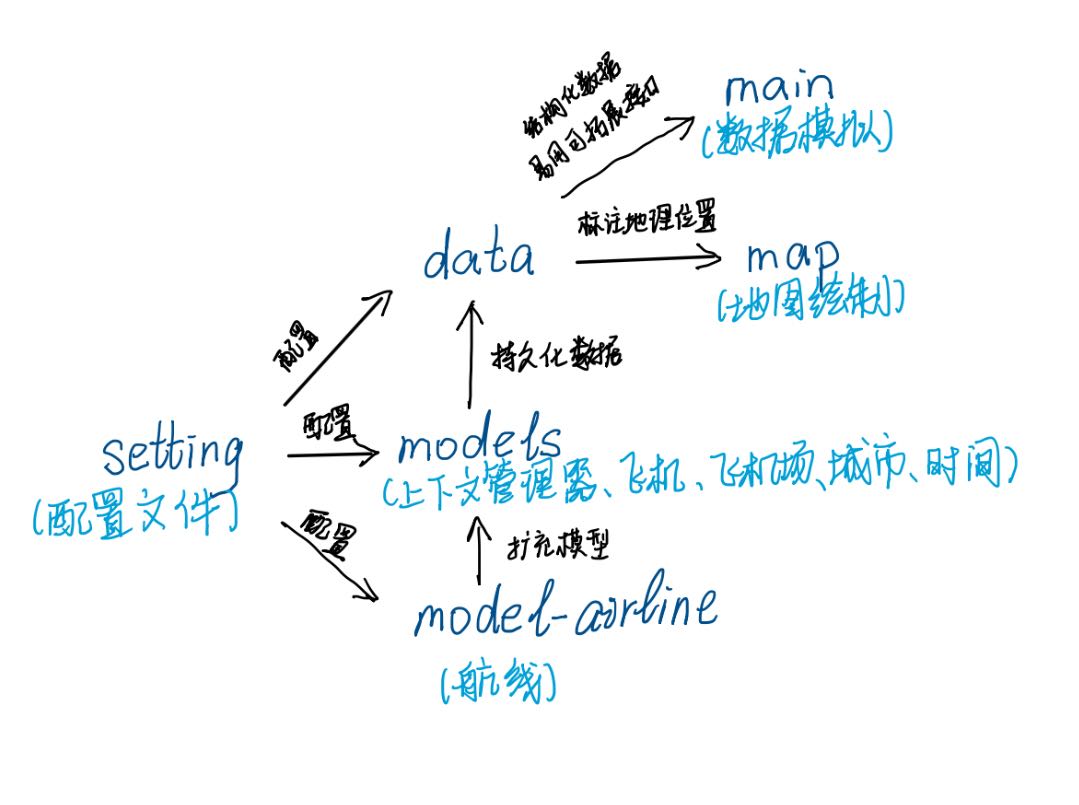 结构化数据
易用可拓展接口
main
(数据模拟)
标注地理位置
data
map
(地图绘制)
配置
持久化数据
配置
setting
models
(配置文件)
(上下文管理器、飞机、飞机场、城市、时间)
配置
扩充模型
model-airline
(航线)